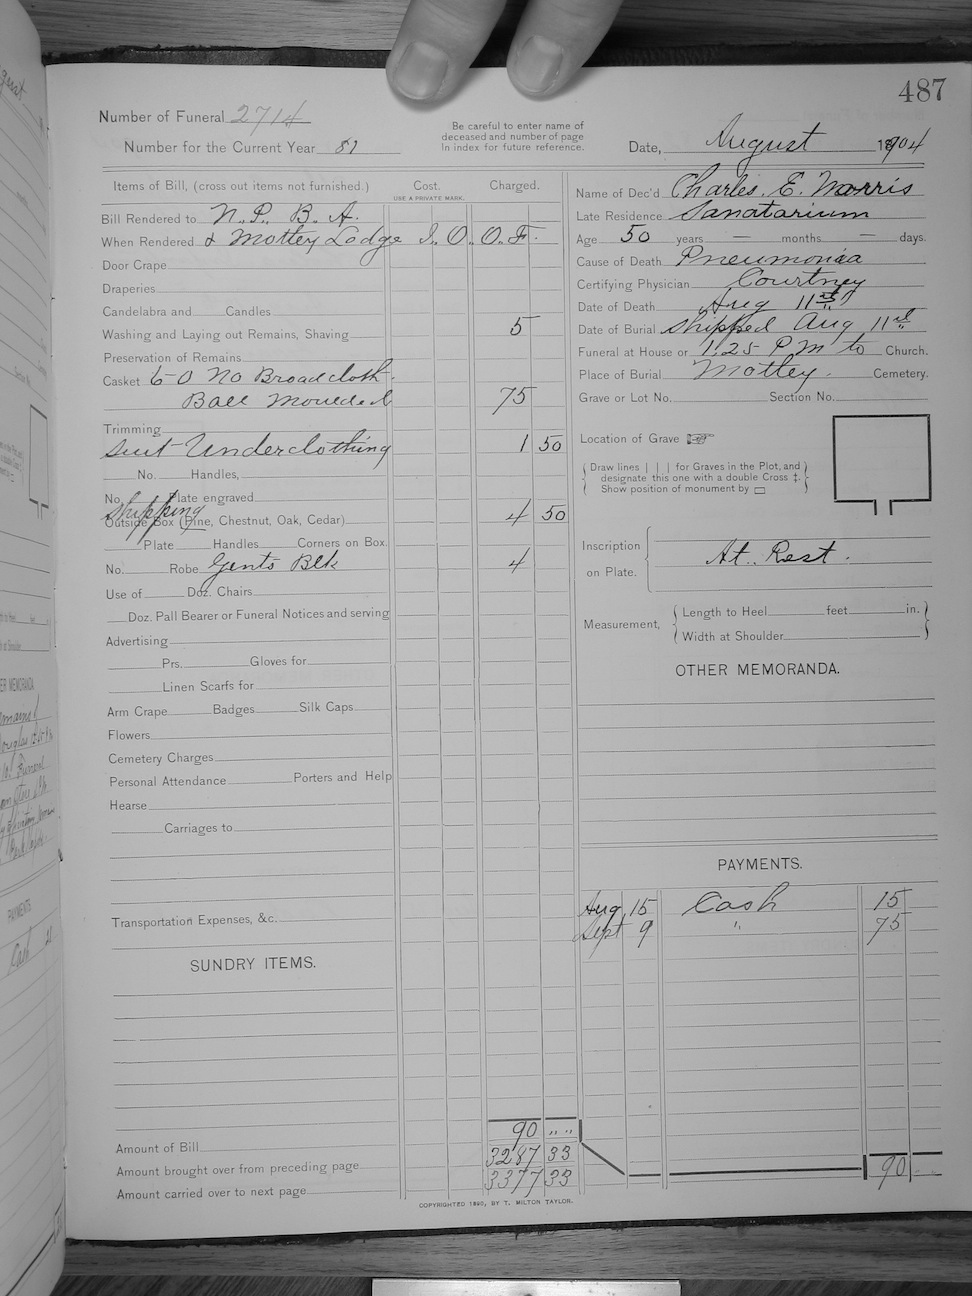 487
Number of Funeral 2714
Number for the Current Year 81
Be careful to enter name of
deceased and number of page
In index for future reference.
Date, August 1904
Items of Bill, (cross out items not furnished.) Cost. Charged.
USE A PRIVATE MARK.
Bill Rendered to N. P. B. A.
When Rendered & Motley Lodge I. O. O. F.
Door Crape
Draperies
Candelabra and Candles
Washing and Laying out Remains, Shaving 5
Preservation of Remains
Casket 6-0 No Broadcloth.
Ball Moulded 75
Trimming
Suit Underclothing 1 50
No. Handles,
No. Plate engraved
Shipping
Outside Box (Pine, Chestnut, Oak, Cedar) 4 50
Plate Handles Corners on Box.
No. Robe Gents Blk 4
Use of Doz. Chairs
Doz. Pall Bearer or Funeral Notices and serving
Advertising
Prs. Gloves for
Linen Scarfs for
Arm Crape Badges Silk Caps
Flowers
Cemetery Charges
Personal Attendance Porters and Help
Hearse
Carriages to
Transportation Expenses, &c.
SUNDRY ITEMS.
Amount of Bill 90 " "
Amount brought over from preceding page 3287 33
Amount carried over to next page 3377 33
Name of Dec'd Charles. E. Morris
Late Residence Sanatarium
Age 50 years — months — days.
Cause of Death Pneumonia
Certifying Physician Courtney
Date of Death Aug 11th
Date of Burial Shipped Aug 11th
Funeral at House or 1.25 PM to Church.
Place of Burial Motley. Cemetery.
Grave or Lot No. Section No.
Location of Grave
Draw lines | | | for Graves in the Plot, and
designate this one with a double Cross ‡.
Show position of monument by ▭
Inscription
on Plate.
At Rest.
Measurement,
Length to Heel feet in.
Width at Shoulder
OTHER MEMORANDA.
PAYMENTS.
Aug 15 Cash 15
Sept 9 " 75
90
COPYRIGHTED 1890, BY T. MILTON TAYLOR.